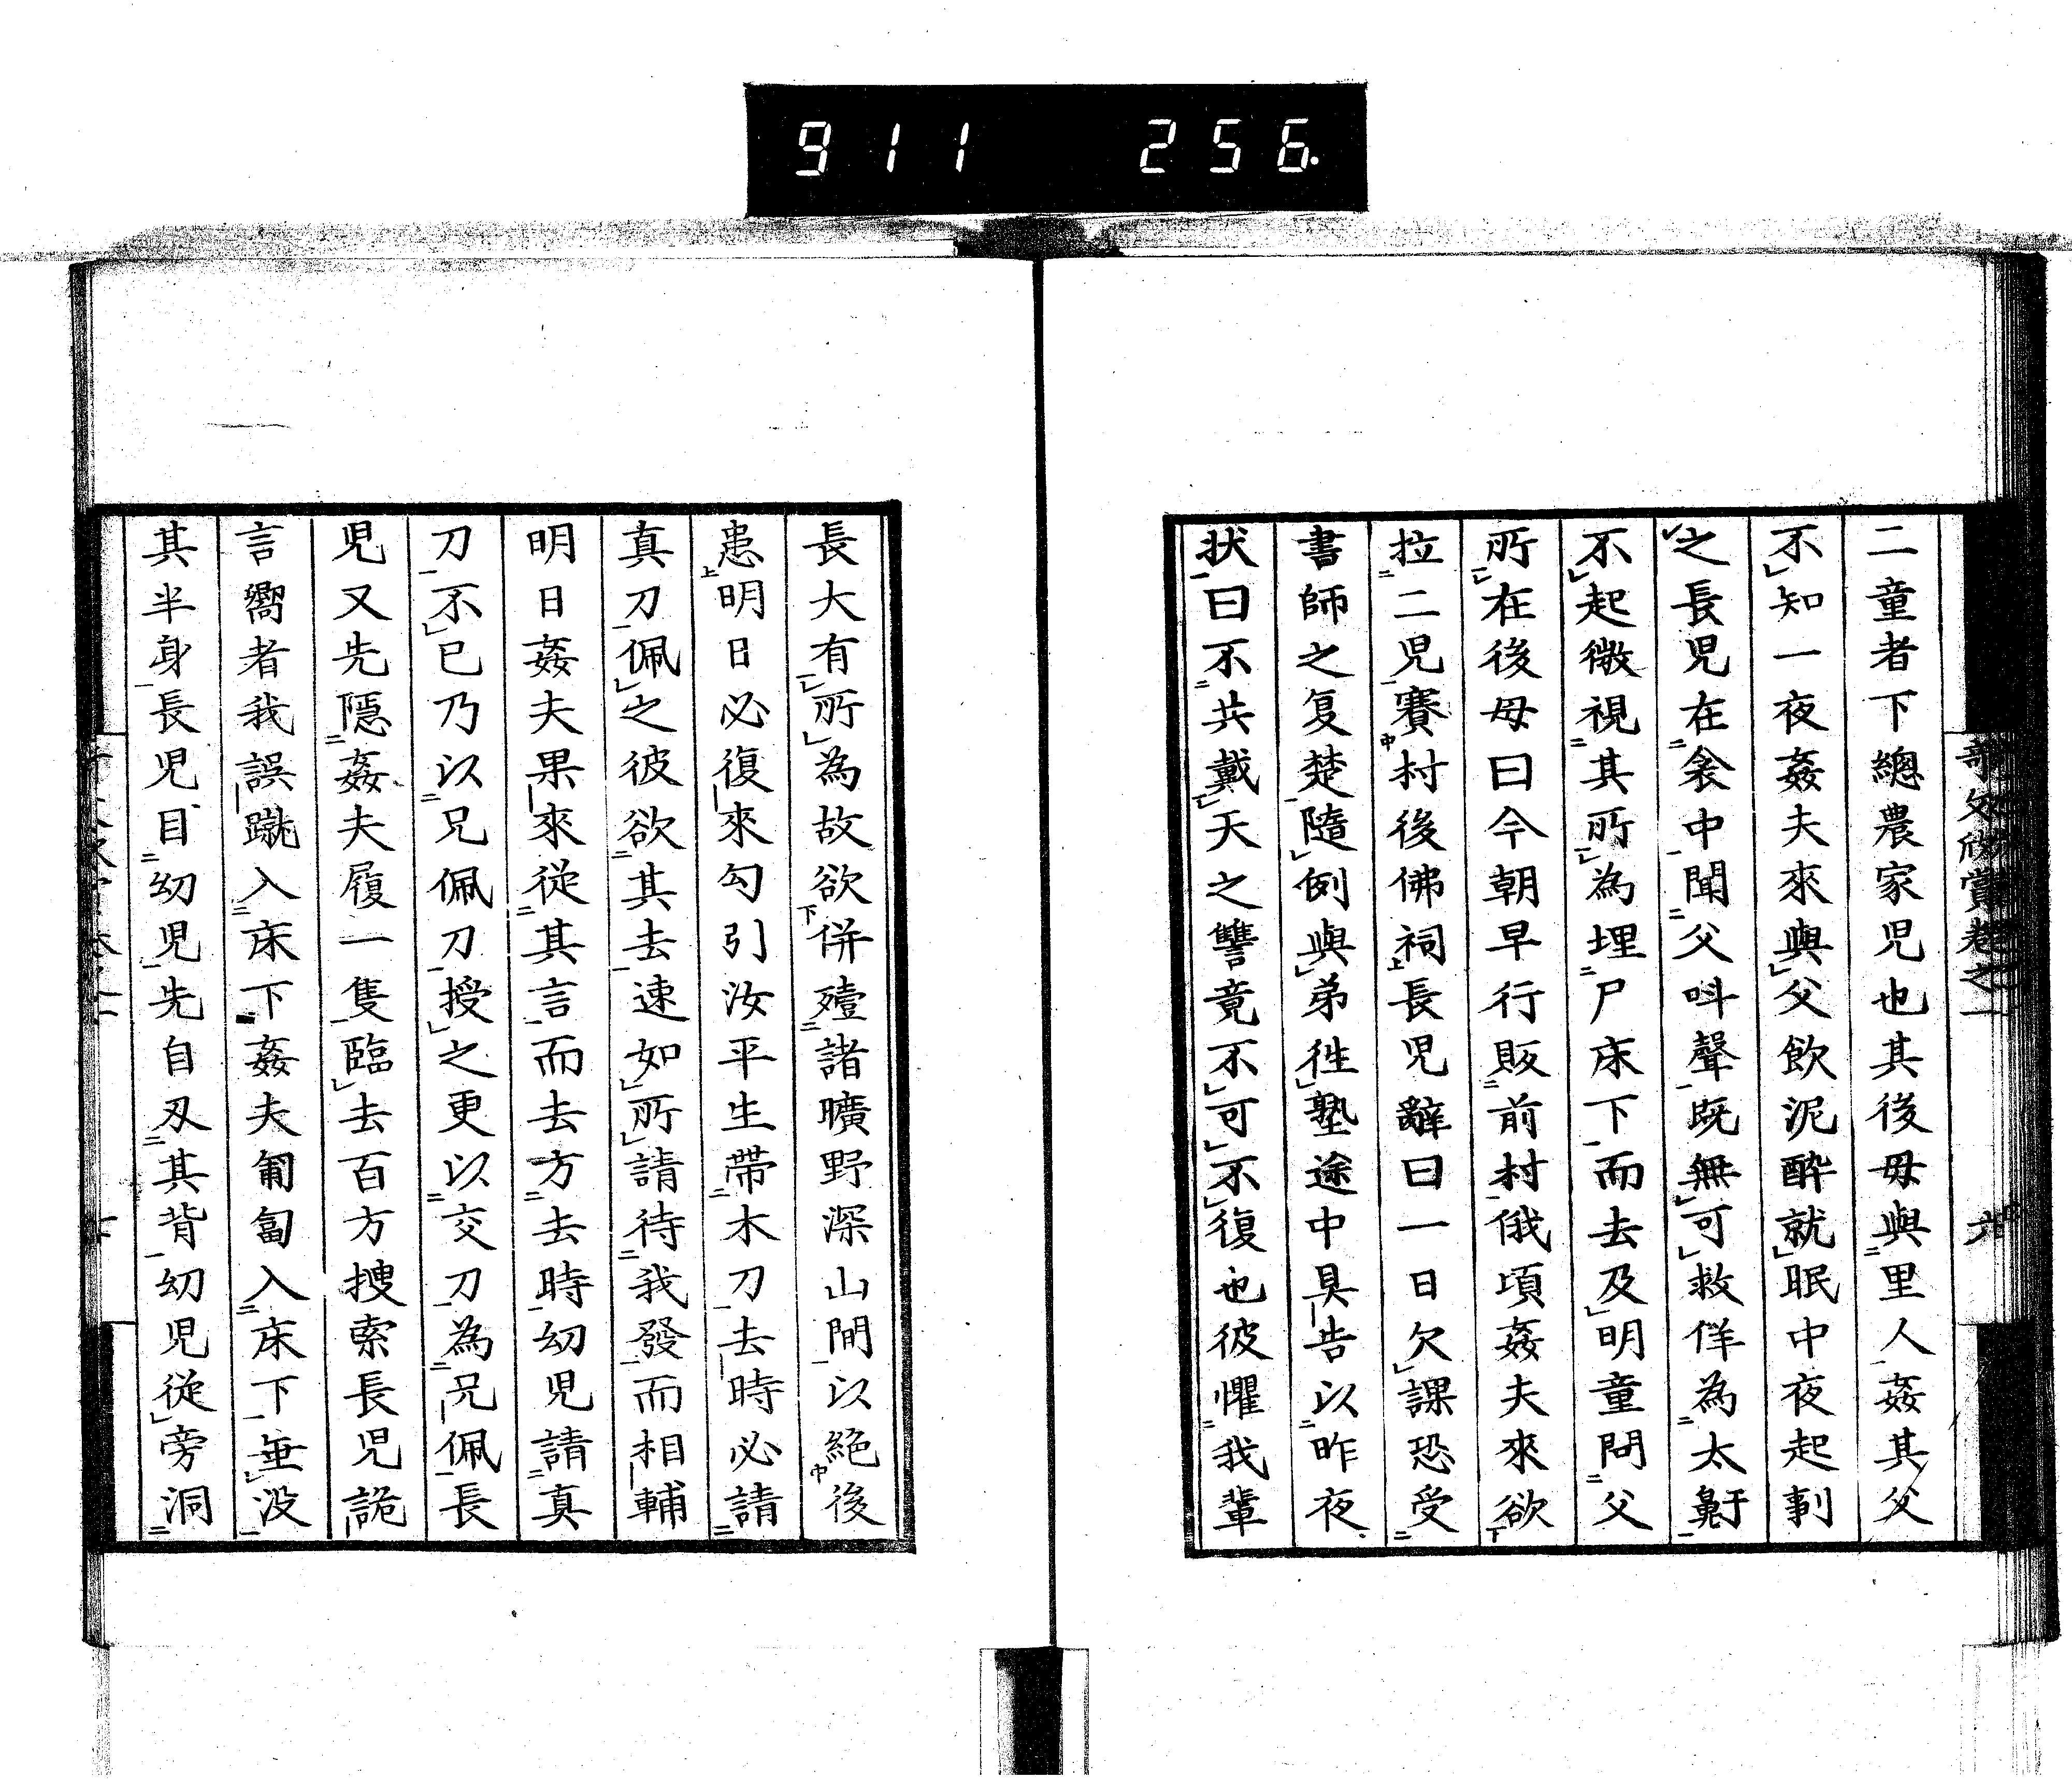 911 256.
二童者下總農家児也其後母與里人姦其父
不知一夜姦夫來與父飲泥酔就眠中夜起剚
之長児在衾中聞父呌聲既無可救佯為太鼾
不起微視其所為埋尸床下而去及明童問父
所在後母曰今朝早行販前村俄頃姦夫來欲
拉二児賽村後佛祠長児辭曰一日欠課恐受
書師之夏楚隨例與弟徃塾途中具告以昨夜
状曰不共戴天之讐竟不可不復也彼懼我輩
長大有所為故欲併殪諸曠野深山間以絶後
患明日必復來勾引汝平生帶木刀去時必請
真刀佩之彼欲其去速如所請待我發而相輔
明日姦夫果來從其言而去方去時幼児請真
刀不已乃以兄佩刀授之更以交刀為兄佩長
児又先隱姦夫履一隻臨去百方搜索長児詭
言嚮者我誤蹴入床下姦夫匍匐入床下垂没
其半身長児目幼児先自刄其背幼児從旁洞